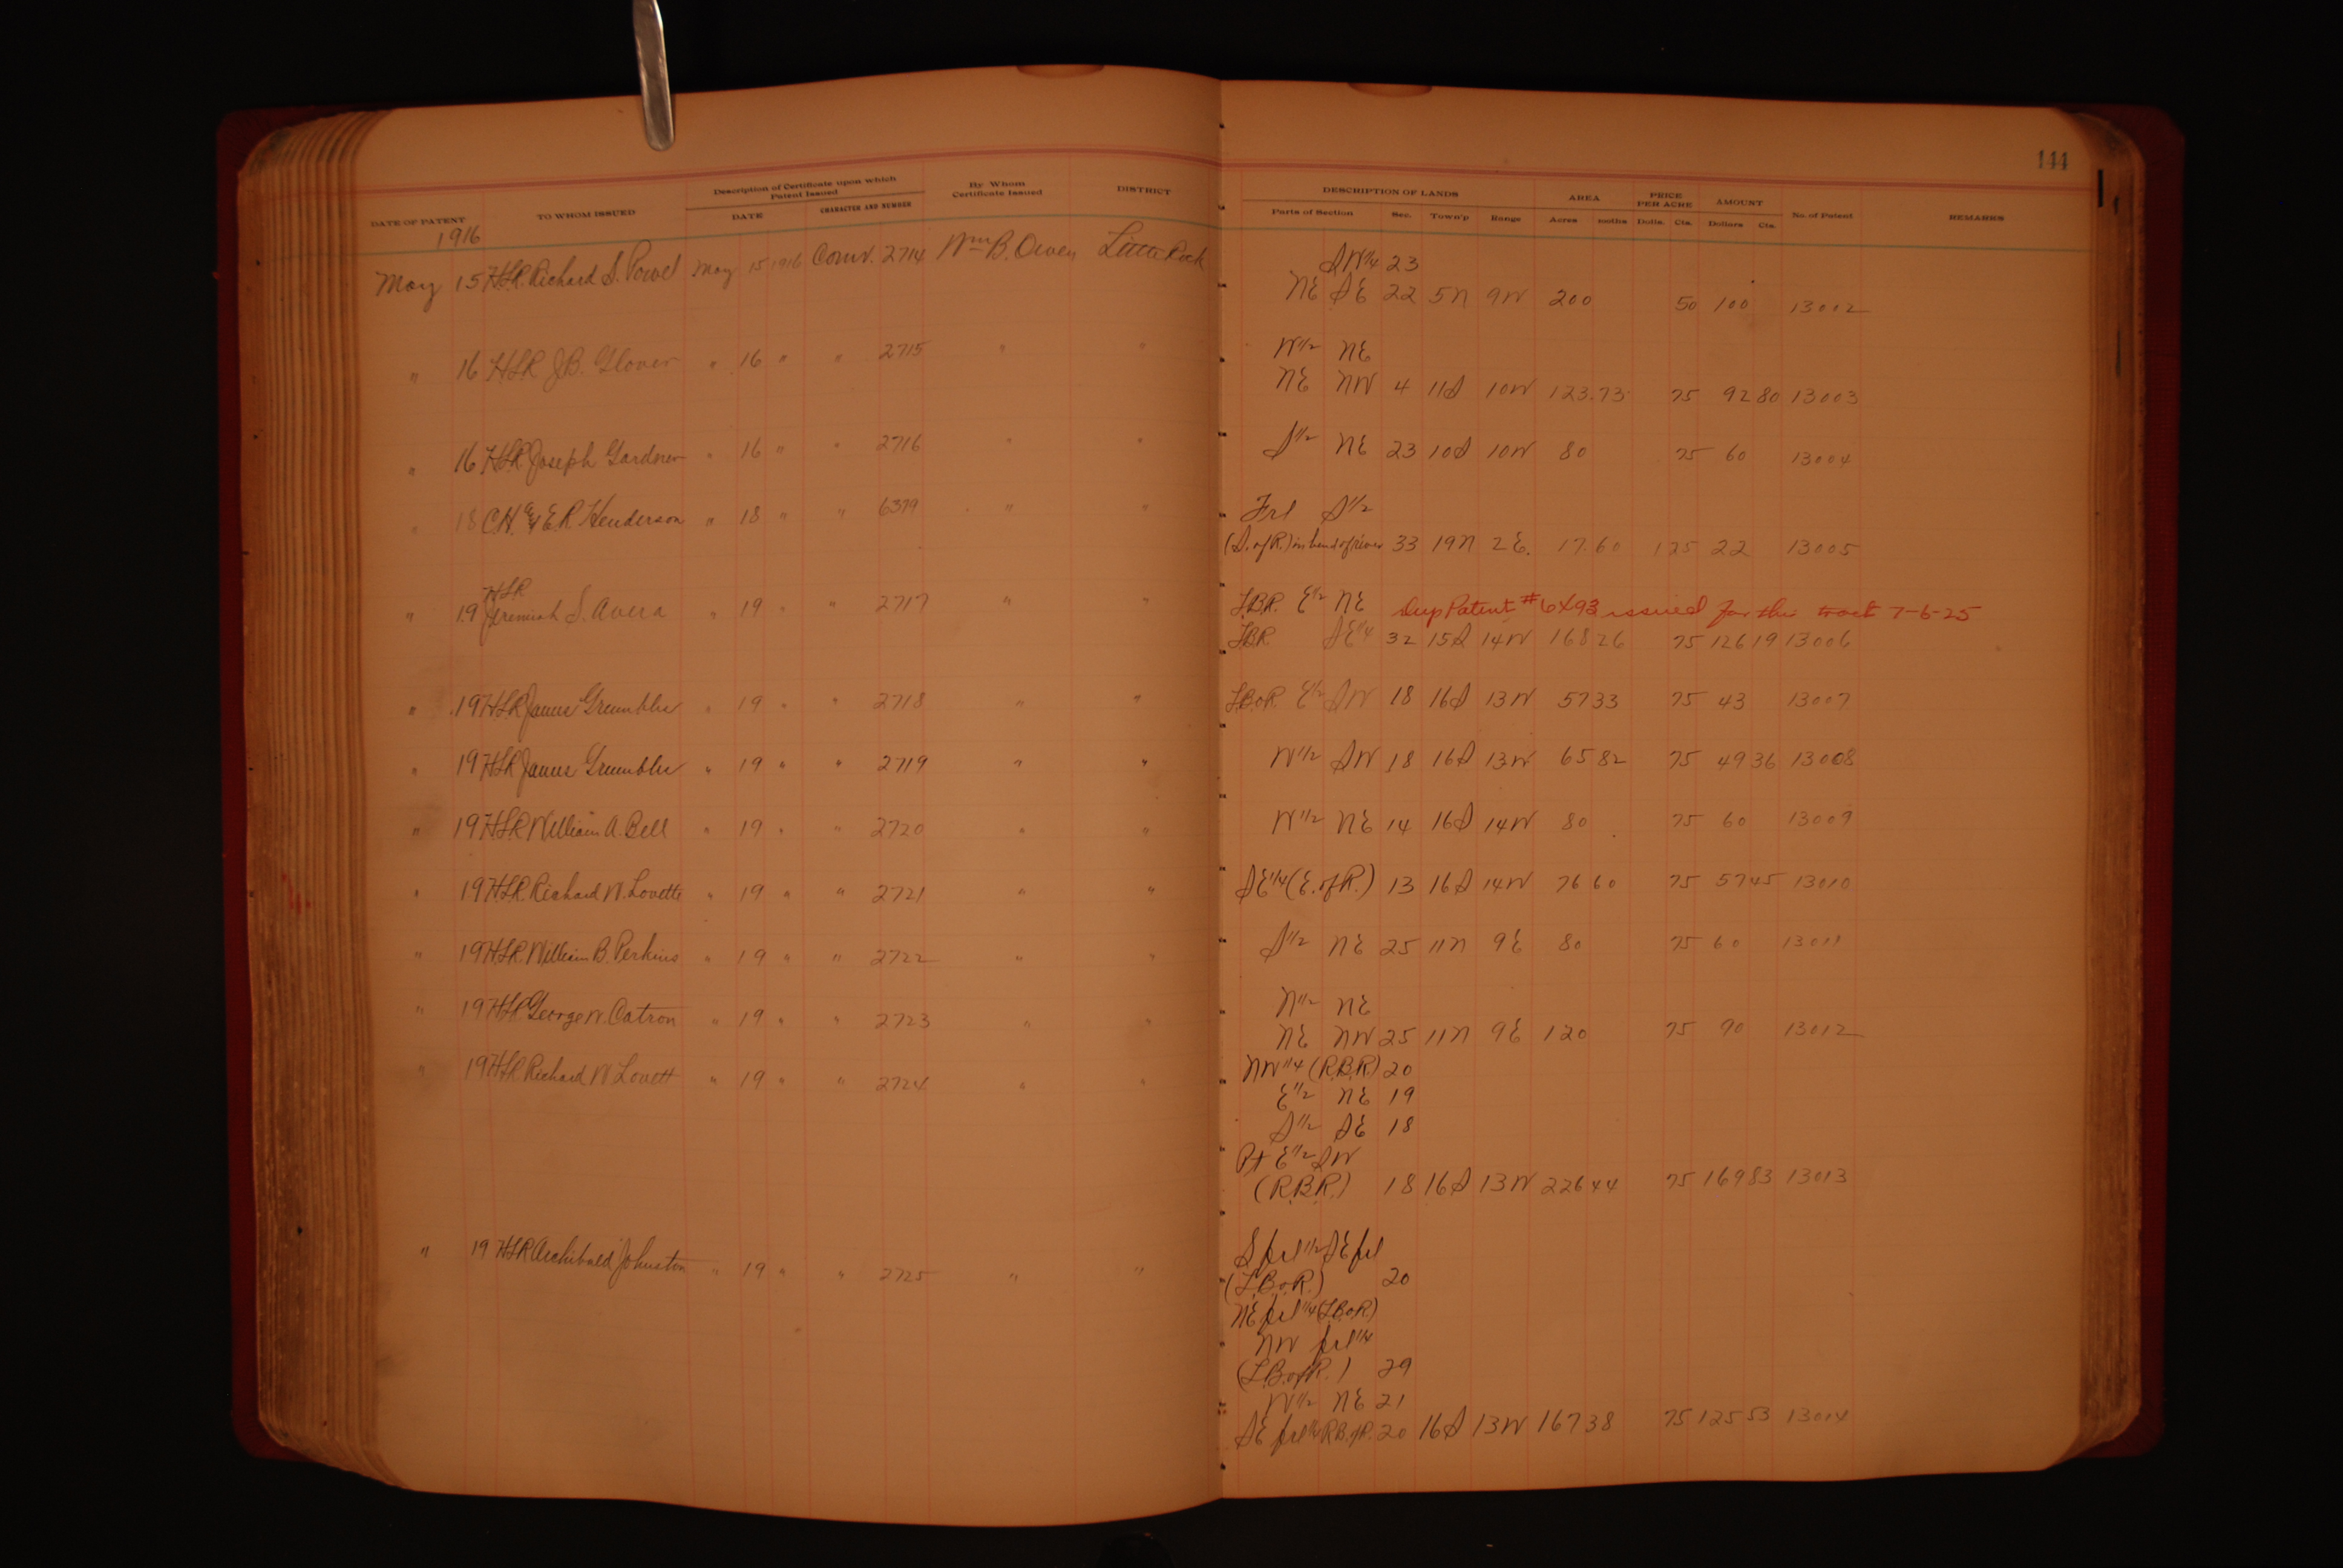 144
DATE OF PATENT TO WHOM ISSUED Description of Certificate upon which Patent Issued DATE CHARACTER AND NUMBER By Whom Certificate Issued DISTRICT DESCRIPTION OF LANDS Parts of Section Sec. Town'p Range AREA Acres PRICE PER ACRE Dolls. Cts. AMOUNT Dollars Cts. No. of Patent REMARKS
1916
May 15 HSR. Richard S. Powel May 15 1916 Conv. 2714 Wm B. Owen Little Rock SW1/4 23
NE SE 22 5N 9W 200 50 100 13002
" 16 HSR J.B. Glover " 16 " " 2715 " " W1/2 NE
NE NW 4 11S 10W 123.73 75 92 80 13003
" 16 HSR Joseph Gardner " 16 " " 2716 " " S1/2 NE 23 10S 10W 80 75 60 13004
" 18 C.H. & E.R. Henderson " 18 " " 6379 " " Frl S1/2
(S. of R.) in bend of river 33 19N 2E. 17.60 1 25 22 13005
" 19 HSR Jeremiah S. Avera " 19 " " 2717 " " L.B.R. E1/2 NE Dup Patent # issued for this tract 7-6-25
LBR SE1/4 32 15S 14W 168 26 75 126 19 13006
" 19 HSR James Grumbler " 19 " " 2718 " " L.B.oR. E1/2 SW 18 16S 13W 57 33 75 43 13007
" 19 HSR James Grumbler " 19 " " 2719 " " W1/2 SW 18 16S 13W 65 82 75 49 36 13008
" 19 HSR William A. Bell " 19 " " 2720 " " W1/2 NE 14 16S 14W 80 75 60 13009
" 19 HSR. Richard W. Lovette " 19 " " 2721 " " SE1/4 (E. of R.) 13 16S 14W 76 60 75 57 45 13010
" 19 HSR. William B. Perkins " 19 " " 2722 " " S1/2 NE 25 11N 9E 80 75 60 13011
" 19 HSR George W. Catron " 19 " " 2723 " " N1/2 NE
NE NW 25 11N 9E 120 75 90 13012
" 19 HSR Richard W Lovett " 19 " " 2724 " " NW1/4 (R.B.R.) 20
E1/2 NE 19
S1/2 SE 18
Pt E1/2 SW
(R.B.R.) 18 16S 13W 226 44 75 169 83 13013
" 19 HSR Archibald Johnston " 19 " " 2725 " " S frl 1/2 SE frl
(L.B.oR.) 20
NE frl 1/4 (L.B.oR)
NW frl 1/4
(L.B.ofR.) 29
W1/2 NE 21
SE frl 1/4 R.B.ofR. 20 16S 13W 167 38 75 125 53 13014